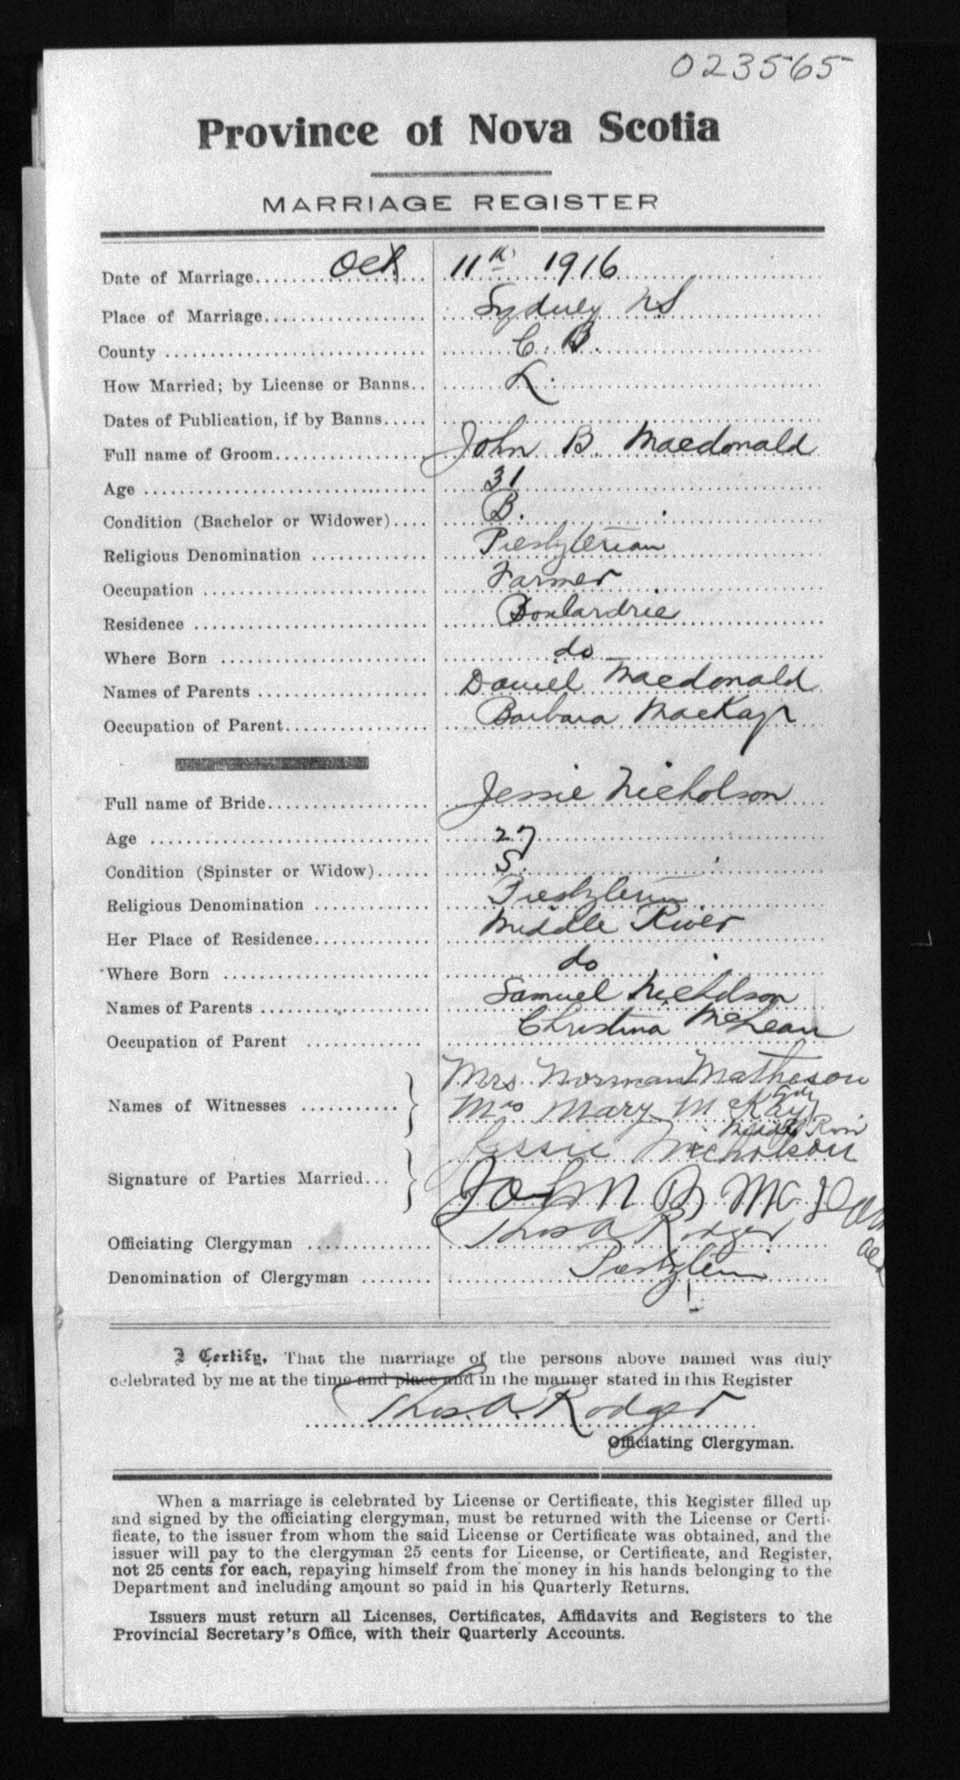 023565
Province of Nova Scotia
MARRIAGE REGISTER
Date of Marriage Oct 11th 1916
Place of Marriage Sydney NS
County C. B.
How Married; by License or Banns L.
Dates of Publication, if by Banns
Full name of Groom John B. Macdonald
Age 31
Condition (Bachelor or Widower) B.
Religious Denomination Presbyterian
Occupation Farmer
Residence Boulardrie
Where Born do
Names of Parents Daniel Macdonald
Occupation of Parent Barbara MacKay
Full name of Bride Jessie Nicholson
Age 27
Condition (Spinster or Widow) S.
Religious Denomination Presbyterian
Her Place of Residence Middle River
Where Born do
Names of Parents Samuel Nicholson
Christina McLean
Occupation of Parent
Mrs. Norman Matheson
Names of Witnesses Mrs Mary McKay
Jessie Nicholson
Signature of Parties Married John B Mc
Officiating Clergyman Thos A Rodger
Denomination of Clergyman
I Certify, That the marriage of the persons above named was duly
celebrated by me at the time and place and in the manner stated in this Register
Thos. A. Rodger
Officiating Clergyman.
When a marriage is celebrated by License or Certificate, this Register filled up
and signed by the officiating clergyman, must be returned with the License or Certi-
ficate, to the issuer from whom the said License or Certificate was obtained, and the
issuer will pay to the clergyman 25 cents for License, or Certificate, and Register,
not 25 cents for each, repaying himself from the money in his hands belonging to the
Department and including amount so paid in his Quarterly Returns.
Issuers must return all Licenses, Certificates, Affidavits and Registers to the
Provincial Secretary's Office, with their Quarterly Accounts.